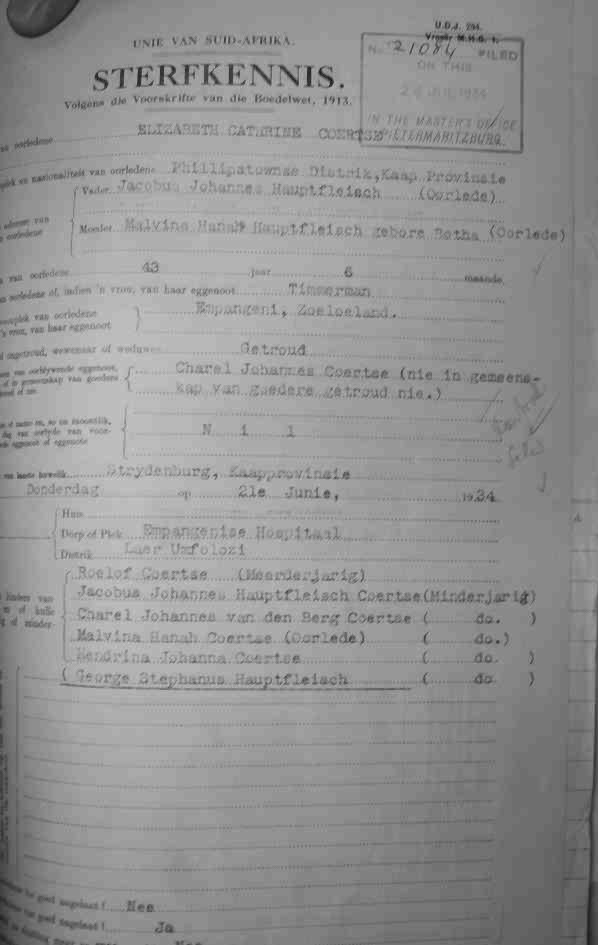 U.D.J. 294.
Vroeër M.H.G. 1.
UNIE VAN SUID-AFRIKA.
No. 21084 FILED
ON THIS
JUL 1934
IN THE MASTER'S OFFICE
PIETERMARITZBURG.
STERFKENNIS.
Volgens die Voorskrifte van die Boedelwet, 1913.
van oorledene ELIZABETH CATHRINE COERTSE
plek en nasionaliteit van oorledene Phillipstownse Distrik, Kaap Provinsie
Vader Jacobus Johannes Hauptfleisch (Oorlede)
adresse van oorledene
Moeder Malvina Hanah Hauptfleisch gebore Botha (Oorlede)
van oorledene 43 jaar 6 maande
van oorledene of, indien 'n vrou, van haar eggenoot Timmerman
van oorledene Empangeni, Zoeloeland.
'n vrou, van haar eggenoot
of ongetroud, wewenaar of weduwee Getroud
van oorlewende eggenoot, Charel Johannes Coertse (nie in gemeens-
of in gemeenskap van goedere kap van goedere getroud nie.)
N i l
van laaste huwelik Strydenburg, Kaapprovinsie
Donderdag op 21e Junie, 1934
Huis
Dorp of Plek Empangenise Hospitaal
Distrik Laer Umfolozi
Roelof Coertse (Meerderjarig)
kinders van Jacobus Johannes Hauptfleisch Coertse (Minderjarig)
of hulle
of minder- Charel Johannes van den Berg Coertse ( do. )
Malvina Hanah Coertse (Oorlede) ( do.)
Hendrina Johanna Coertse ( do. )
( George Stephanus Hauptfleisch ( do )
goed nagelaat? Nee
goed nagelaat? Ja
Nee